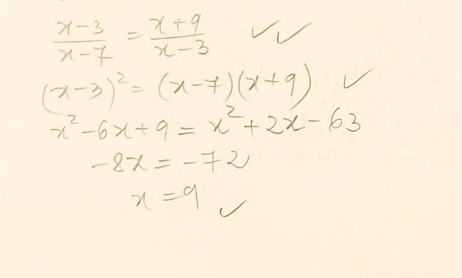 (x-3)/(x-7) = (x+9)/(x-3) ✓✓
(x-3)² = (x-7)(x+9) ✓
x²-6x+9 = x²+2x-63
-8x = -72
x = 9 ✓